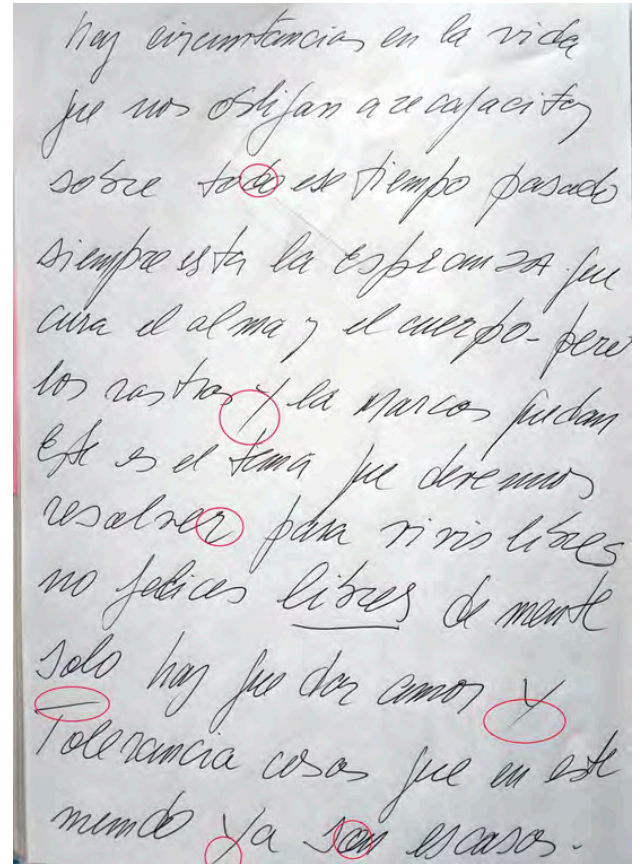 hay circunstancias en la vida
que nos obligan a recapacitar
sobre todo ese tiempo pasado
siempre esta la EsperanzA que
cura el alma y el cuerpo - pero
los rastros y la Marcas quedan
Este es el tema que deremos
resolver para vivir libres
no felices libres de mente
Solo hay que dar amor y
Tolerancia cosas que en este
mundo ya son escasos.